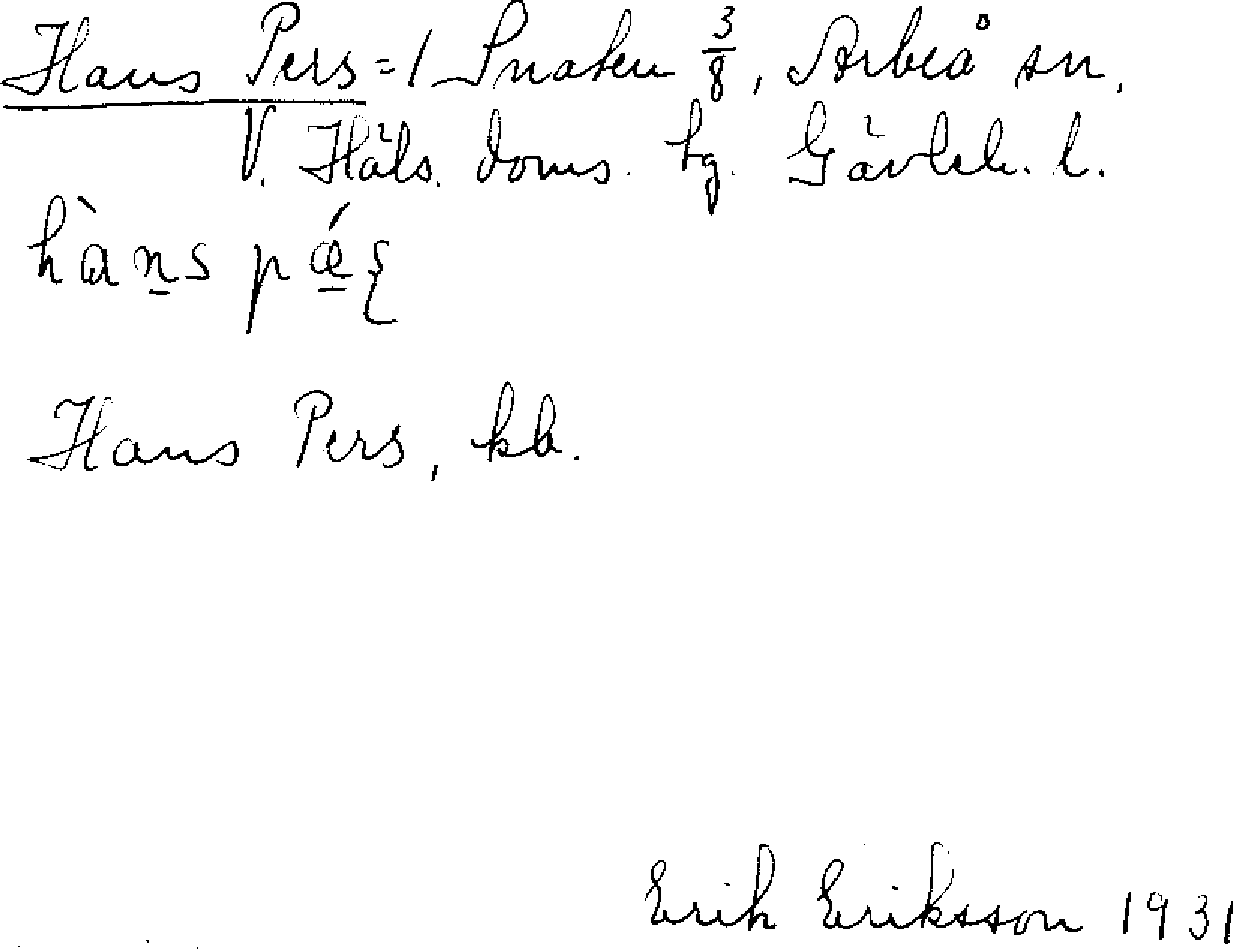 Hans Pers = 1 Snaten 3/8, Arbrå sn.
V. Häls. doms. tg. Gävleb. l.
hàn̲s pǽ̲ʂ
Hans Pers, kb.
Erik Eriksson 1931